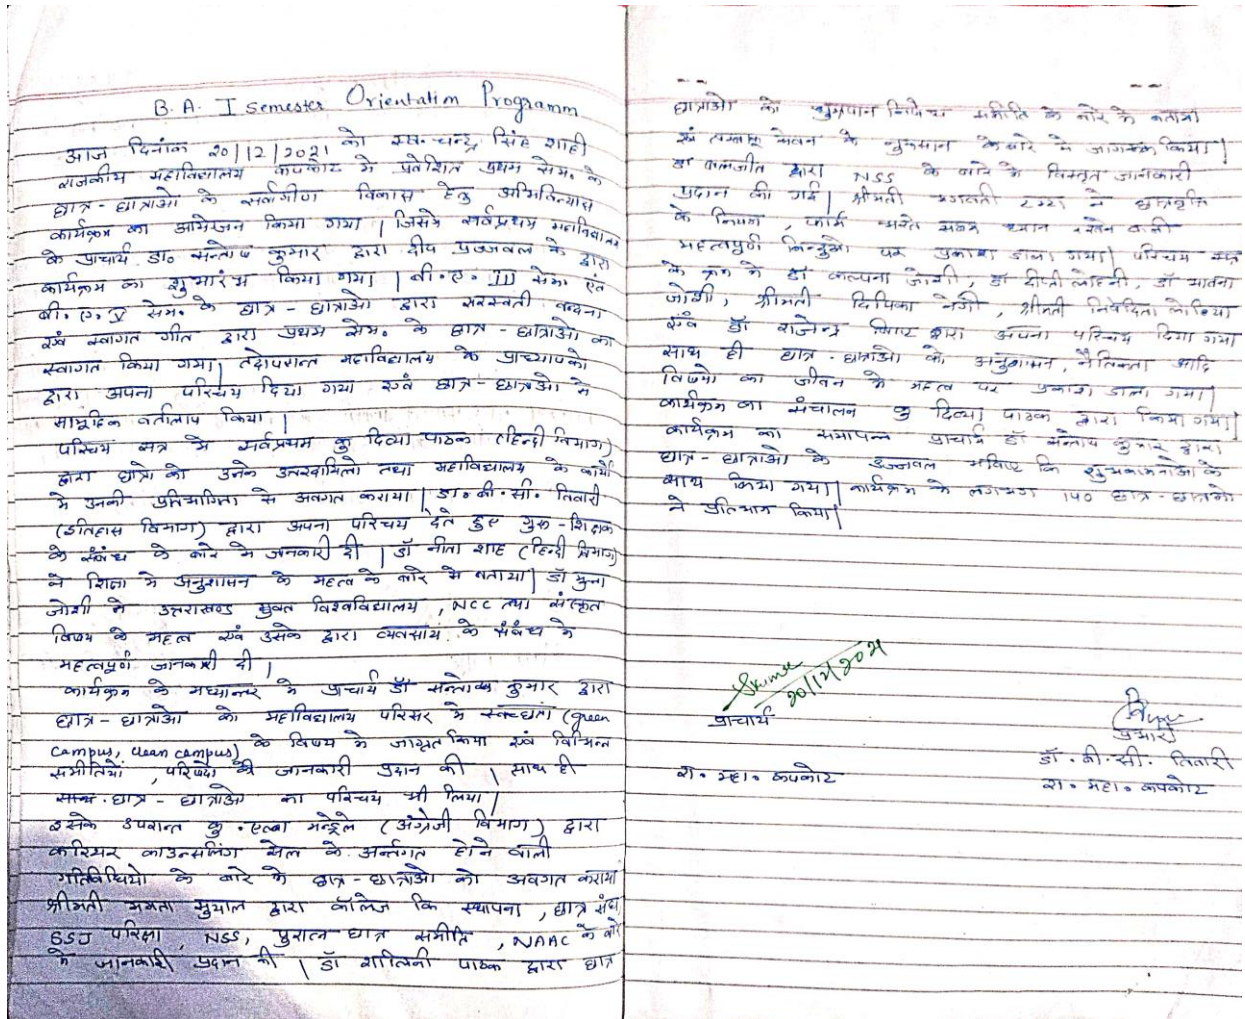 B. A. I semester Orientation Programm
आज दिनांक 20/12/2021 को स्व. चन्द्र सिंह शाही
राजकीय महाविद्यालय कपकोट मे प्रवेशित प्रथम सेम. के
छात्र - छात्राओ के सर्वांगीण विकास हेतु अभिविन्यास
कार्यक्रम का आयोजन किया गया | जिसमे सर्वप्रथम महाविद्यालय
के प्राचार्य डा० सन्तोष कुमार द्वारा दीप प्रज्जवल के द्वारा
कार्यक्रम का शुभारंभ किया गया | बी. ए. III सेम. एवं
बी. ए. V सेम. के छात्र - छात्राओ द्वारा सरस्वती वन्दना
एवं स्वागत गीत द्वारा प्रथम सेम. के छात्र - छात्राओ का
स्वागत किया गया | तदोपरान्त महाविद्यालय के प्राध्यापको
द्वारा अपना परिचय दिया गया एवं छात्र - छात्राओ से
सामूहिक वर्तालाप किया |
परिचय सत्र मे सर्वप्रथम कु दिव्या पाठक (हिन्दी विभाग)
द्वारा छात्रो को उनके उत्तरदायित्वो तथा महाविद्यालय के कार्यो
मे उनकी प्रतिभागिता से अवगत कराया | डा. बी. सी. तिवारी
(इतिहास विभाग) द्वारा अपना परिचय देते हुए गुरू - शिक्षक
के संबंध के बारे मे जानकारी दी | डॉ नीता शाह (हिन्दी विभाग)
ने शिक्षा मे अनुशासन के महत्व के बारे मे बताया | डॉ मुन्ना
जोशी ने उत्तराखण्ड मुक्त विश्वविद्यालय, NCC तथा संस्कृत
विषय के महत्व एवं उसके द्वारा व्यवसाय के संबंध मे
महत्वपूर्ण जानकारी दी |
कार्यक्रम के मध्यान्तर मे प्राचार्य डॉ सन्तोष कुमार द्वारा
छात्र - छात्राओ को महाविद्यालय परिसर मे स्वच्छता (green
campus, clean campus) के विषय मे जाग्रत किया एवं विभिन्न
समीतियो, परिषदो की जानकारी प्रदान की | साथ ही
छात्र - छात्राओ का परिचय भी लिया |
इसके उपरान्त कु. एल्बा मन्द्रेले (अंग्रेजी विभाग) द्वारा
करियर काउन्सलिंग सेल के अर्न्तगत होने वाली
गतिविधियो के बारे मे छात्र - छात्राओ को अवगत कराया
श्रीमती ममता सुयाल द्वारा कॉलेज कि स्थापना, छात्र संघ,
SSJ परिक्षा, NSS, पुरातन छात्र समीति, NAAC के बारे
मे जानकारी प्रदान की | डॉ शालिनी पाठक द्वारा छात्र
छात्राओ को धुम्रपान निषेध समीति के बारे मे बताया
एवं तम्बाकू सेवन के नुकसान के बारे मे जागरूक किया |
द्वारा NSS के बारे मे विस्तृत जानकारी
प्रदान की गई | श्रीमती भगवती ने छात्रवृत्ति
के नियम, फार्म भरते समय ध्यान रखने वाली
महत्वपूर्ण बिन्दुओ पर प्रकाश डाला गया | परिचय सत्र
के क्रम मे डॉ कल्पना जोशी, डॉ दीप्ती लोहनी, डॉ भावना
जोशी, श्रीमती दिपिका नेगी, श्रीमती निवेदिता
एवं डॉ राजेन्द्र द्वारा अपना परिचय दिया गया
साथ ही छात्र - छात्राओ को अनुशासन, नैतिकता आदि
विषयो का जीवन मे महत्व पर प्रकाश डाला गया |
कार्यक्रम का संचालन कु दिव्या पाठक द्वारा किया गया |
कार्यक्रम का समापन प्राचार्य डॉ सन्तोष कुमार द्वारा
छात्र - छात्राओ के उज्जवल भविष्य कि शुभकामनाओ के
साथ किया गया | कार्यक्रम मे लगभग 140 छात्र - छात्राओ
ने प्रतिभाग किया |
20/12/2021
प्राचार्य
रा. महा. कपकोट
प्रभारी
डॉ. बी. सी. तिवारी
रा. महा. कपकोट